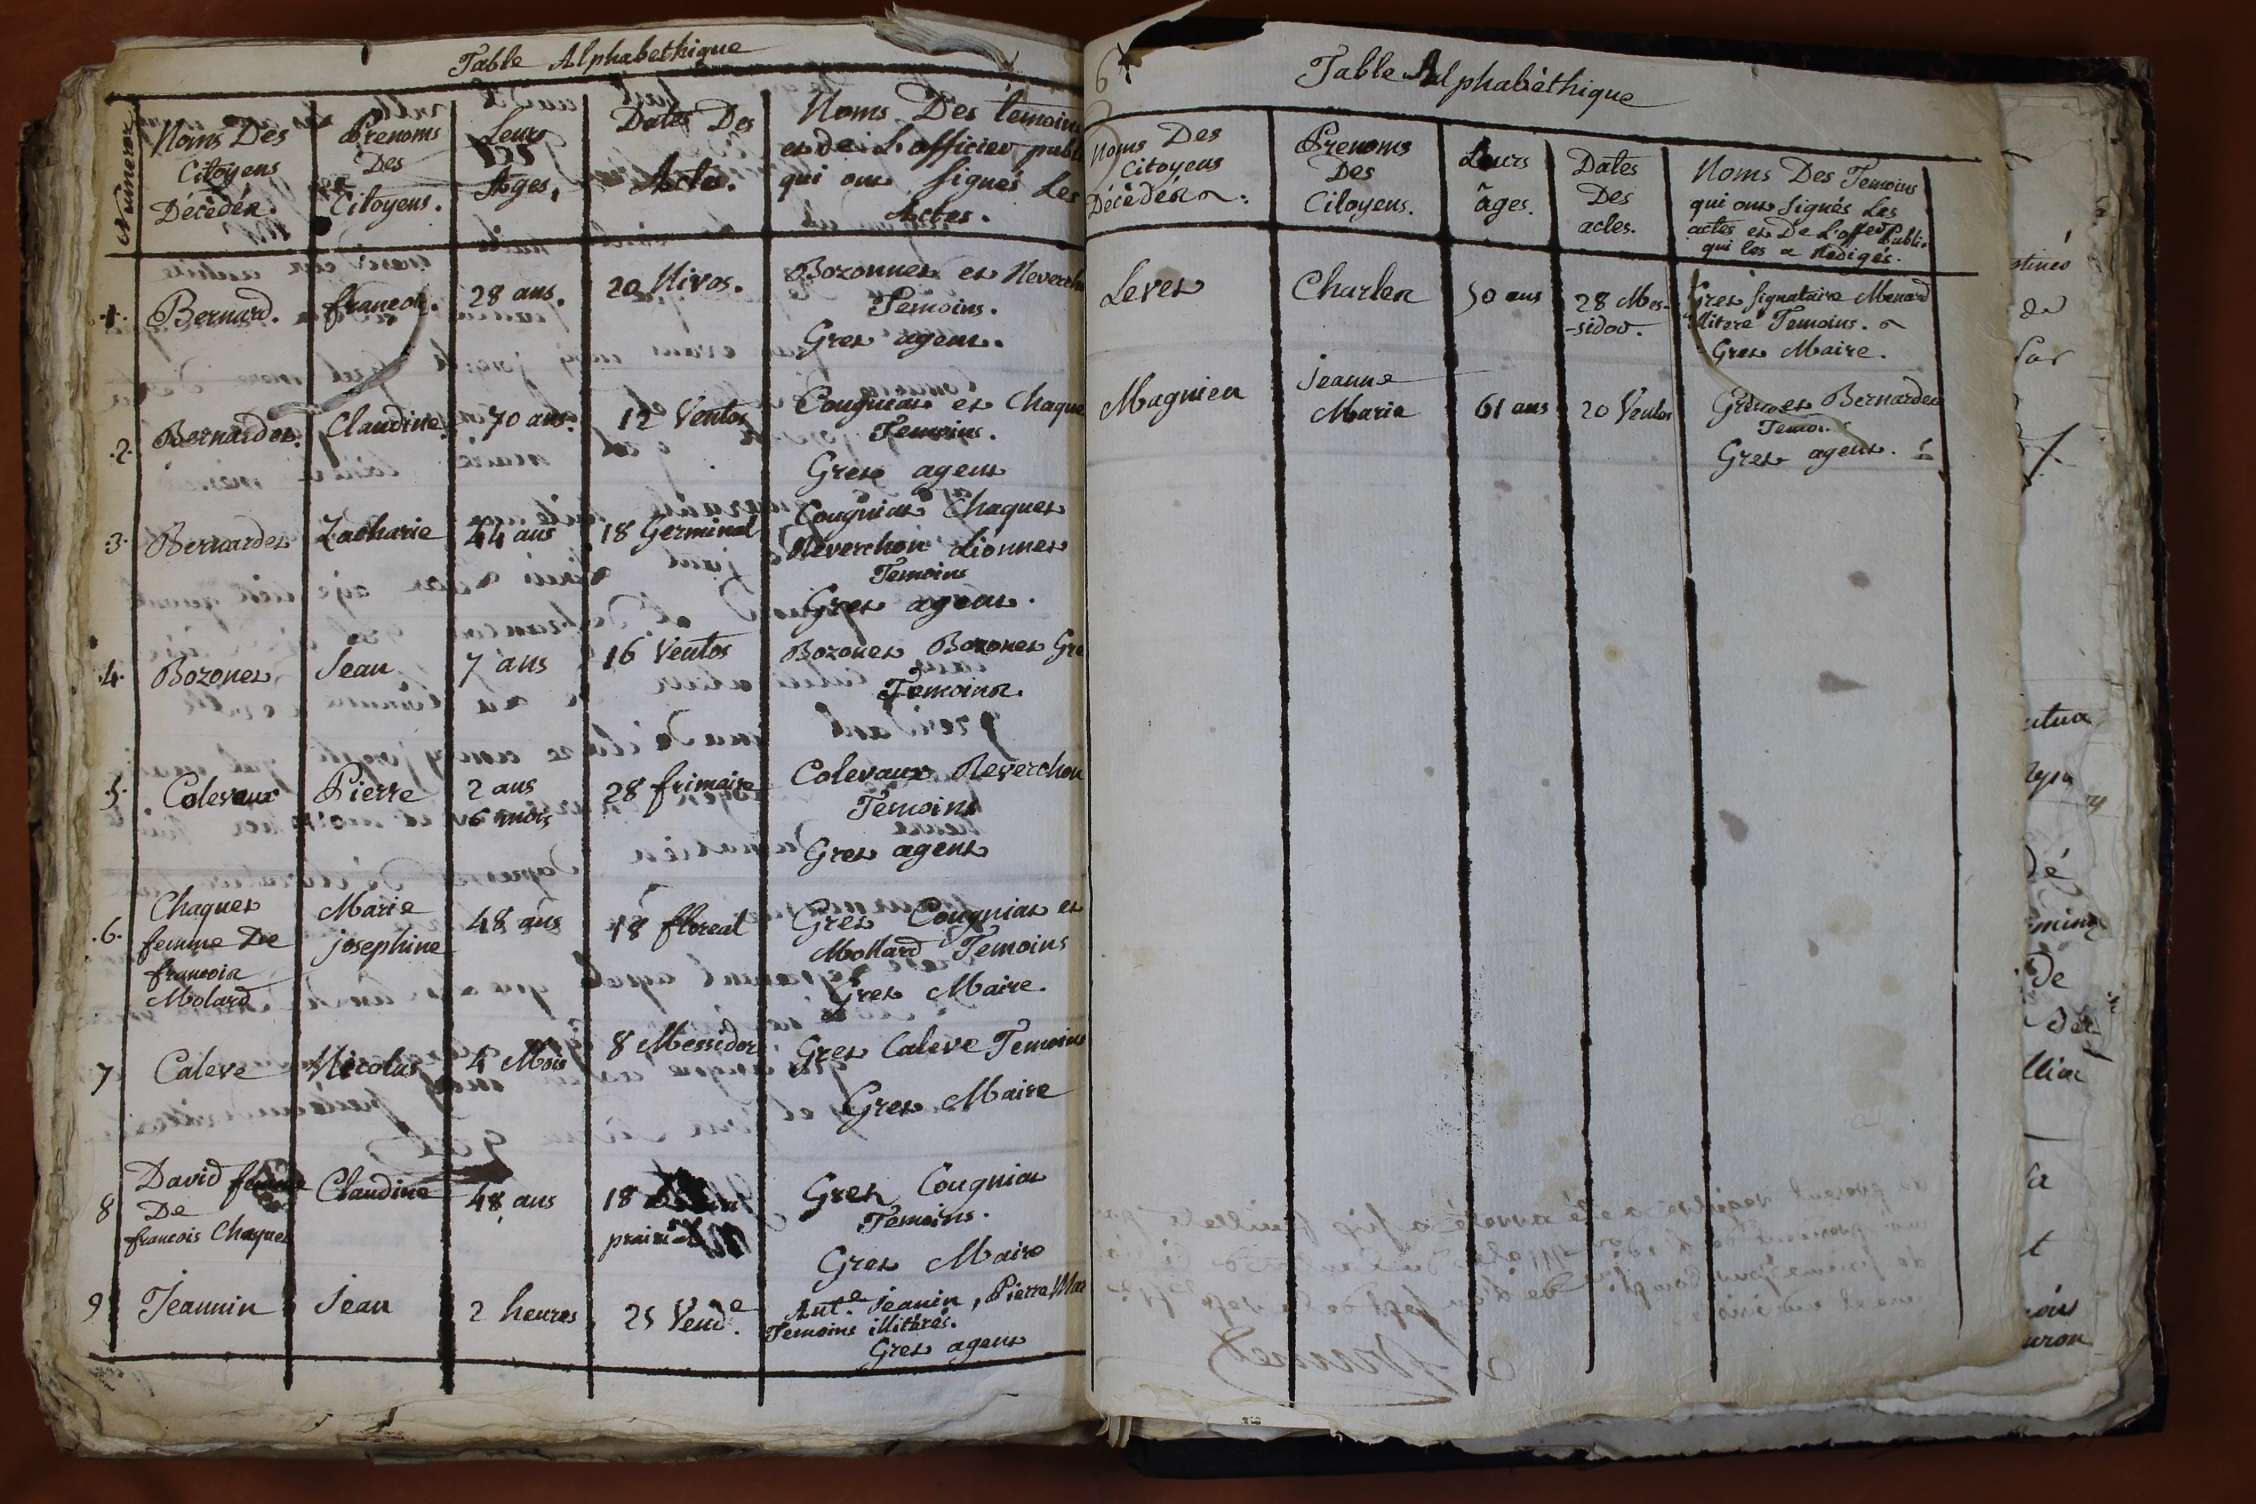 Table Alphabethique
Numeros
Noms Des
Citoyens
Décédés.
Prenoms
Des
Citoyens.
Leurs
Ages,
Dates Des
Actes.
Noms Des temoins
et de L'officier publi
qui ont signés Les
Actes.
1. Bernard. francois. 28 ans. 20 Nivos. Bozonnet et Reverch
Temoins.
Gret agent.
.2. Bernardet. Claudine. 70 ans. 12 Ventos Cougniat et Chaque
Temoins.
Gret agent
3. Bernardet Zacharie 44 ans 18 Germinal Cougniat Chaquet
Reverchon Lionnet
Temoins
Gret agent.
.4. Bozonet Jean 7 ans 16 Ventos Bozonet Bozonet Gre
Temoins.
.5. Colevaux Pierre 2 ans 28 frimaire Colevaux Reverchon
6 mois Temoins
Gret agent
Chaquet Marie 48 ans 18 floreal Gret Cougniat et
.6. femme De josephine Mollard Temoins
francois
Molard Gret Maire.
7 Caleve Nicolas 4 Mois 8 Messidor Gret Caleve Temoins
Gret Maire
David femme Claudine 48 ans 18 Gret Cougniat
8 De Temoins.
francois Chaquet prairial
Gret Maire
9 Jeannin Jean 2 heures 25 Vend.e Ant.e Jeanin, Pierre Mar
Temoins illitérés.
Gret agent
6
Table Alphabèthique
Noms Des
Citoyens
Décédés.
Prenoms
Des
Citoyens.
Leurs
âges.
Dates
Des
actes.
Noms Des Temoins
qui ont signés Les
actes et De L'offer Publi.
qui les a Redigés.
Levet Charles 50 ans 28 Mes- Gret signataire Menard
-sidor. illiteré Temoins.
Gret Maire.
Magnien Jeanne
Marie 61 ans 20 Ventos Gret et Bernardet
Temoi
Gret agent.